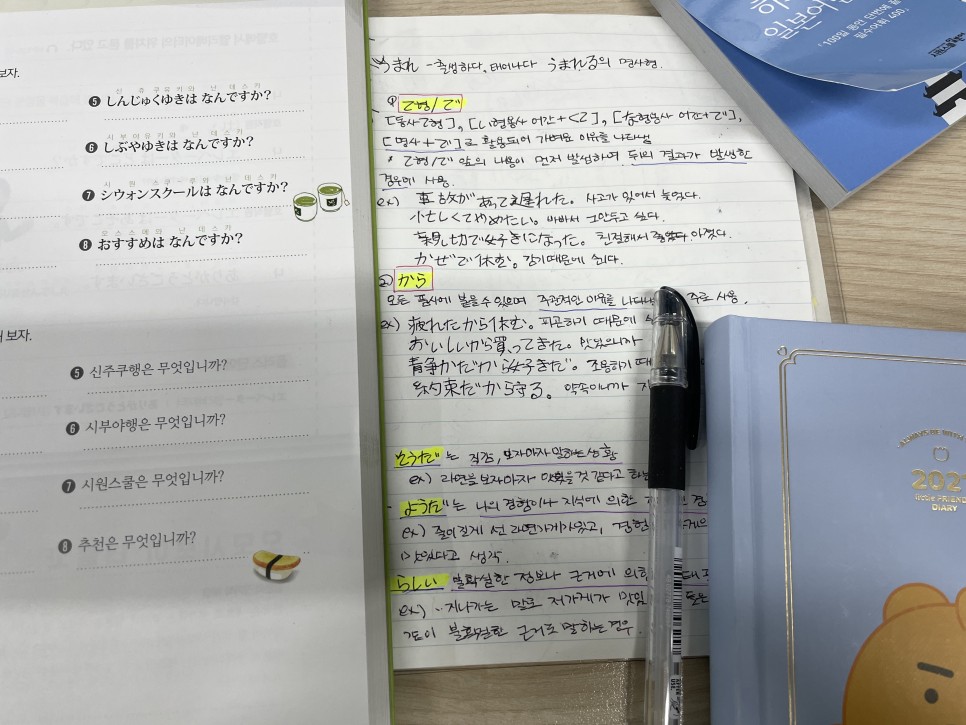 보자.
신 쥬 쿠유키와 난 데스카
❺ しんじゅくゆきは なんですか?
시부야유키와 난 데스카
❻ しぶやゆきは なんですか?
시 원 스쿠-루와 난 데스카
❼ シウォンスクールは なんですか?
오스스메와 난 데스카
❽ おすすめは なんですか?
보자.
❺ 신주쿠행은 무엇입니까?
❻ 시부야행은 무엇입니까?
❼ 시원스쿨은 무엇입니까?
❽ 추천은 무엇입니까?
うまれ - 출생하다, 태어나다 うまれる의 명사형.
て형/で
[동사て형], [い형용사 어간+く て], [な형용사 어간+で],
[명사+で]로 활용되어 가벼운 이유를 나타냄
* て형/で 앞의 내용이 먼저 발생하며 뒤의 결과가 발생한
경우에 사용.
ex) 事故があって遅れた。 사고가 있어서 늦었다.
忙しくてやめたい。 바빠서 그만두고 싶다.
親切で好きになった。 친절해서 좋아졌다.
かぜで休む。 감기때문에 쉰다.
② から
모든 품사에 붙을 수 있으며 주관적인 이유를 나타 주로 사용.
ex) 疲れたから休む。 피곤하기 때문에
おいしいから買ってきた。 맛있으니까
静かだから好きだ。 조용하기 때
約束だから守る。 약속이니까
そうだ는 직감, 보자마자 말하는 상황
ex) 라면을 보자마자 맛있을 것 같다고
ようだ는 나의 경험이나 지식에 의한
ex) 줄이 길게 선 라면가게가 있고, 경험
맛있다고 생각.
らしい 불확실한 정보나 근거에 의
ex) 지나가는 말로 저가게가 맛있
불확실한 근거로 말하는 경우.
일본어
100일 동안 단번에
필수어휘 400
ALWAYS BE WITH
202
little FRIEN
DIARY